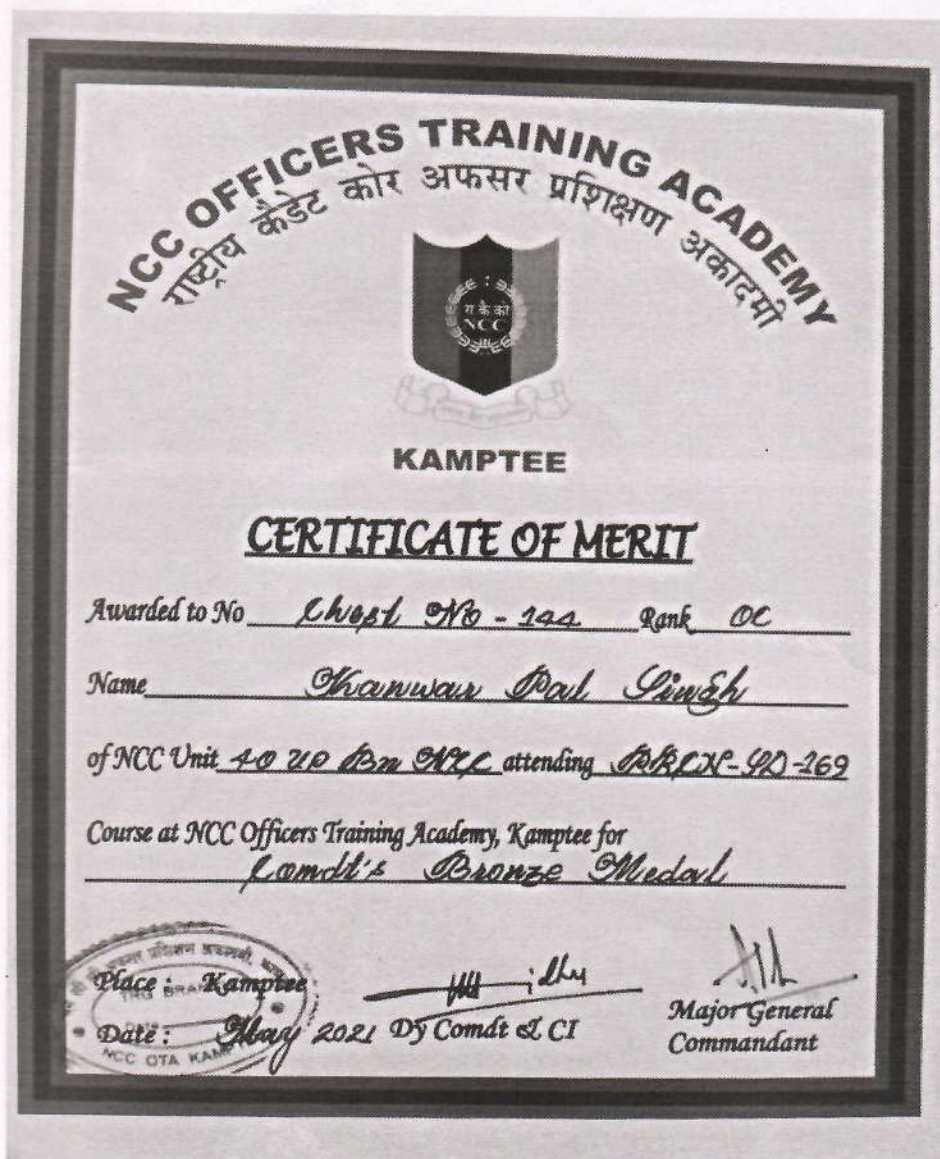 NCC OFFICERS TRAINING ACADEMY
राष्ट्रीय कैडेट कोर अफसर प्रशिक्षण अकादमी
रा कै को
NCC
KAMPTEE
CERTIFICATE OF MERIT
Awarded to No Chest No - 144 Rank OC
Name Kanwar Pal Singh
of NCC Unit 40 UP Bn NCC attending PRCN-SD-169
Course at NCC Officers Training Academy, Kamptee for
Comdt's Bronze Medal
Place : Kamptee
Date : May 2021 Dy Comdt & CI
Major General
Commandant
NCC OTA